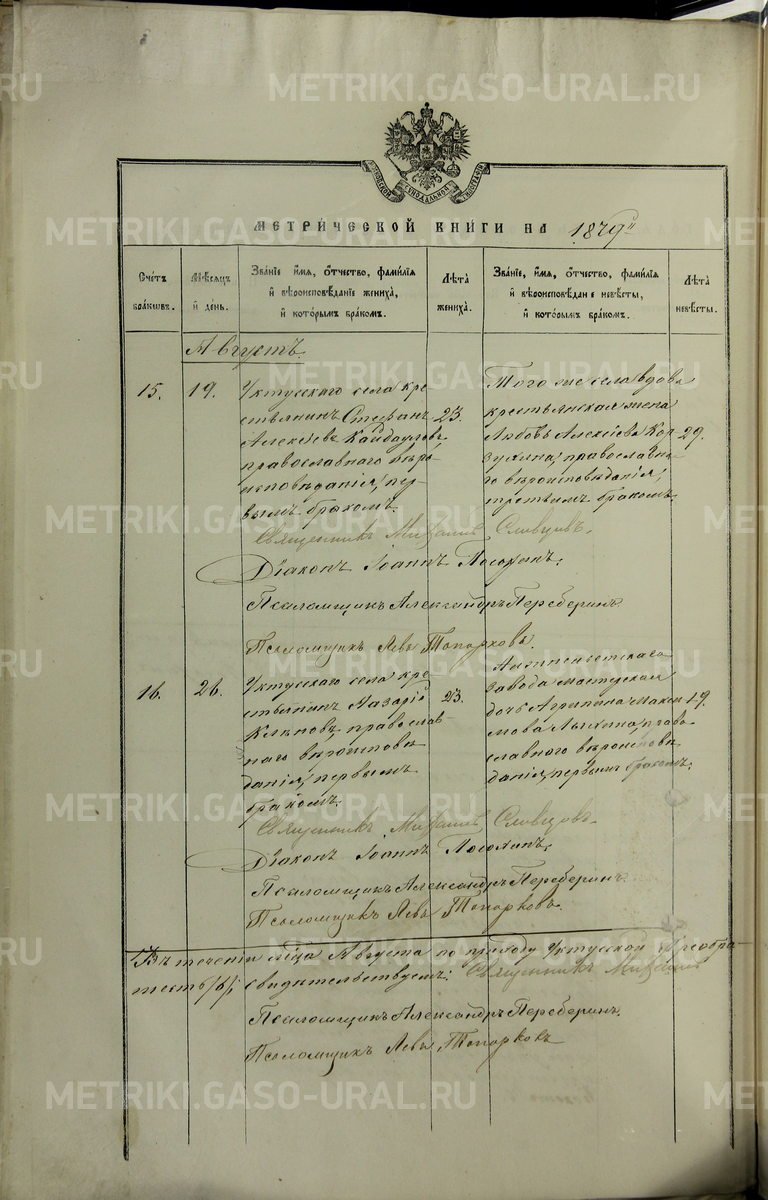 METRIKI.GASO-URAL.RU
МОСКОВСКОЙ СѶНОДАЛЬНОЙ ТИПОГРАФІИ
МЕТРИ́ЧЕСКОЙ КНИ́ГИ НА 1879 г.
Счетъ бра́кѡвъ.
Мѣ́сяцъ и҆ де́нь.
Зва́нїе и҆́мя, ѻ҆́тчество, фами́лїя и҆ вѣроисповѣ́данїе жениха̀, и҆ кото́рымъ бра́комъ.
Лѣ́та жениха̀.
Зва́нїе, и҆́мя, ѻ҆́тчество, фами́лїя и҆ вѣроисповѣ́данїе невѣ́сты, и҆ кото́рымъ бра́комъ.
Лѣ́та невѣ́сты.
Августъ.
15.
19.
Уктусскаго села кре-
стьянинъ Стефанъ
Алексѣевъ Кайдауловъ
православнаго вѣро-
исповѣданія, пер-
вымъ бракомъ.
23.
Того же села вдова
крестьянская жена
Любовь Алексѣева Кор-
зухина, православна-
го вѣроисповѣданія,
третьимъ бракомъ.
29.
Священникъ Михаилъ Словцовъ.
Діаконъ Іоаннъ
Псаломщикъ Александръ Переберинъ.
Псаломщикъ Левъ Топорковъ.
16.
26.
Уктусскаго села кре-
стьянинъ Лазарій
православ-
наго вѣроисповѣ-
данія, первымъ
бракомъ.
23.
завода мастерская
дочь Агрипина Макси-
мова право-
славнаго вѣроисповѣ-
данія, первымъ бракомъ.
19.
Священникъ Михаилъ Словцовъ.
Діаконъ Іоаннъ
Псаломщикъ Александръ Переберинъ.
Псаломщикъ Левъ Топорковъ.
Въ теченіи мѣсяца Августа по приходу Уктусской Преобра-
шесть /6/, свидѣтельствуемъ: Священникъ Михаилъ
Псаломщикъ Александръ Переберинъ.
Псаломщикъ Левъ Топорковъ